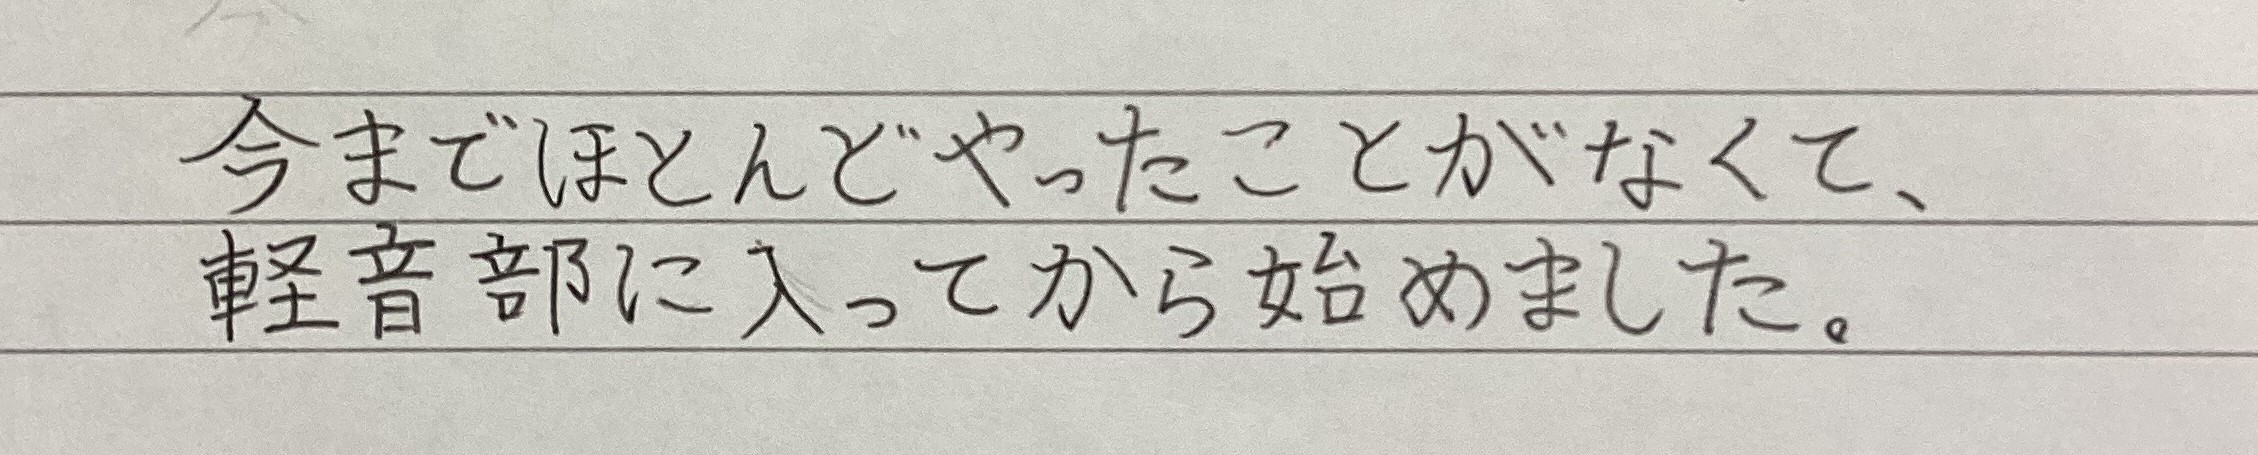 今までほとんどやったことがなくて、
軽音部に入ってから始めました。